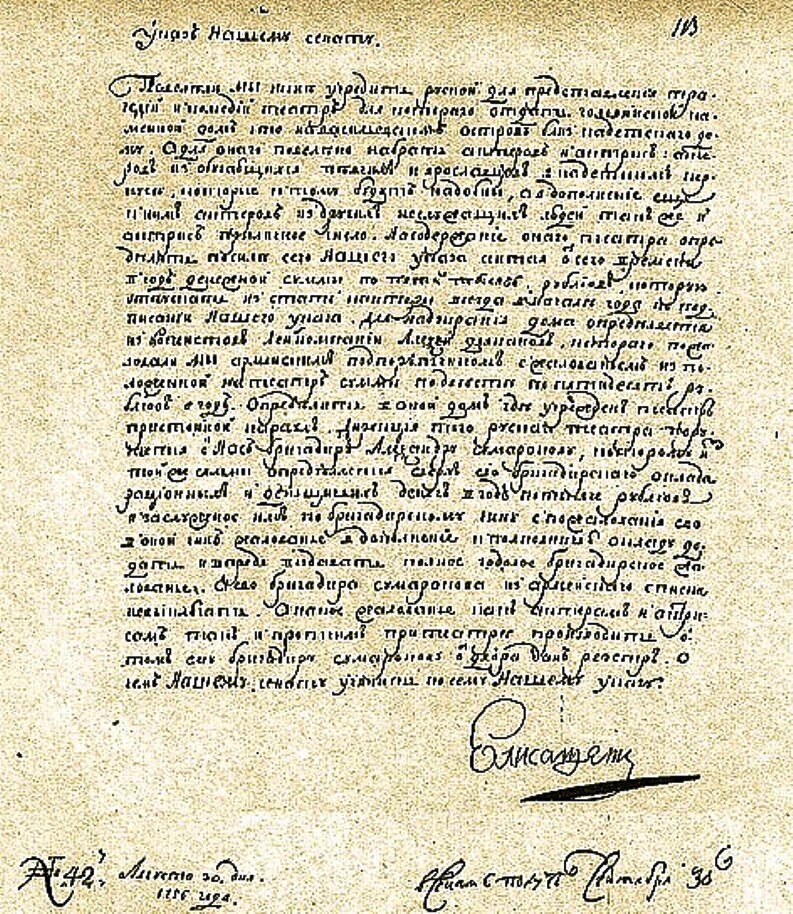 Указъ Нашему сенату.
113
Повелѣли мы нынѣ учредить руской для представленiя тра-
гедiй и комедiй театръ, для котораго отдать головкинской ка-
менной домъ, что на васильевскомъ острову близ кадетскаго до-
му. А для онаго повелѣно набрать актеровъ и актрисъ: акте-
ровъ из обучающихся певчихъ и ярославцовъ в кадетскомъ кор-
пусе, которые к тому будутъ надобны, а в дополненiе еще
к нимъ актеровъ из другихъ неслужащихъ людей также и
актрисъ приличное число. На содержанiе онаго театра опре-
дѣлить по силе сего Нашего указа считая от сего времени
в годъ денежной суммы по пяти тысячь рублiовъ, которую
отпускать из статсъ конторы всегда в начале года по под-
писанiи Нашего указа. Для надзиранiя дома определяется
из копеистовъ Лейбкомпанiи Алексей дьяконовъ, котораго пожа-
ловали мы армейскимъ подпорутчикомъ с жалованьемъ из по-
ложенной на театръ суммы по двести по пятидесятъ ру-
блiовъ в годъ. Определить в оной домъ где учрежденъ театръ
пристойной караулъ. Дирекция того рускаго театра пору-
чается от Насъ бригадиру Александру Сумарокову, которому из
той же суммы определяется сверхъ его бригадирскаго оклада
рацiонныхъ и денщичьихъ денегъ в годъ по тысяче рублiовъ
и заслуженое имъ по бригадирскому чину с пожалованiя его
в оной чинъ жалованье в дополненiе к полковничью окладу до-
дать и впредь выдавать полное годовое бригадирское жа-
лованье. А его бригадира сумарокова из армейскаго списка
не выключать. А какое жалованье какъ актерамъ и актри-
самъ такъ и протчимъ при театре производить о
томъ ему бригадиру сумарокову от двора данъ реэстръ. О
чемъ Нашему сенату учинить по сему Нашему указу.
Елисаветъ
№ 42
Августа 30. дня.
1756 года.
сентября